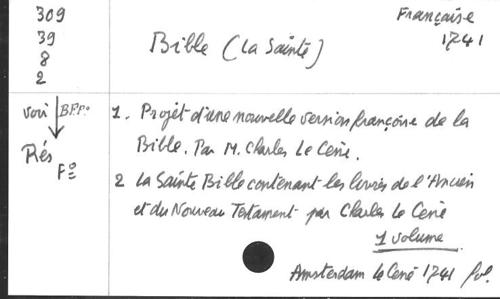 309
39
8
2
Bible (La Sainte)
Française
1741
voir B.P.Po
Rés
Fo
1. Projet d'une nouvelle version françoise de la
Bible. Par M. Charles Le Cene.
2 La Sainte Bible contenant les livres de l'Ancien
et du Nouveau Testament par Charles Le Cene
1 volume
Amsterdam Le Cene 1741 fol.